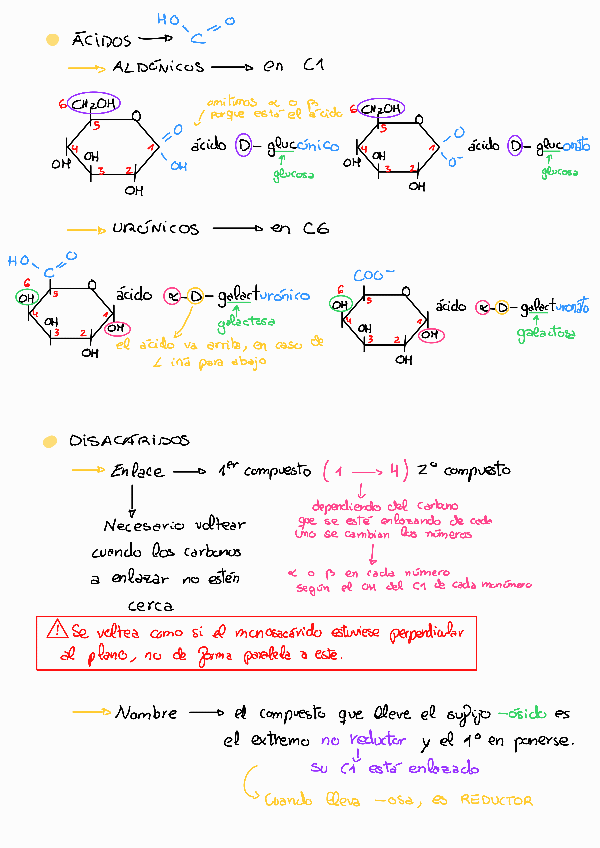 HO O
• ÁCIDOS → C
→ ALDÓNICOS → en C1
6 CH2OH omitimos α o β 6 CH2OH
porque está el ácido
5 O 5 O
4 1 O ácido D-glucónico 4 1 O ácido D-gluconato
OH OH 3 2 OH glucosa OH OH 3 2 O⁻ glucosa
OH OH
→ URÓNICOS → en C6
HO C O COO⁻
6 5 O ácido α-D-galacturónico 6 5 O ácido α-D-galacturonato
OH 4 1 galactosa OH 4 1 galactosa
OH 3 2 OH OH 3 2 OH
OH el ácido va arriba, en caso de OH
L irá para abajo
• DISACÁRIDOS
→ Enlace → 1er compuesto (1 → 4) 2º compuesto
dependiendo del carbono
que se esté enlazando de cada
uno se cambian los números
Necesario voltear
cuando los carbonos
a enlazar no estén
cerca
α o β en cada número
según el OH del C1 de cada monómero
⚠ Se voltea como si el monosacárido estuviese perpendicular
al plano, no de forma paralela a este.
→ Nombre → el compuesto que lleve el sufijo -ósido es
el extremo no reductor y el 1º en ponerse.
su C1 está enlazado
Cuando lleva -osa, es REDUCTOR